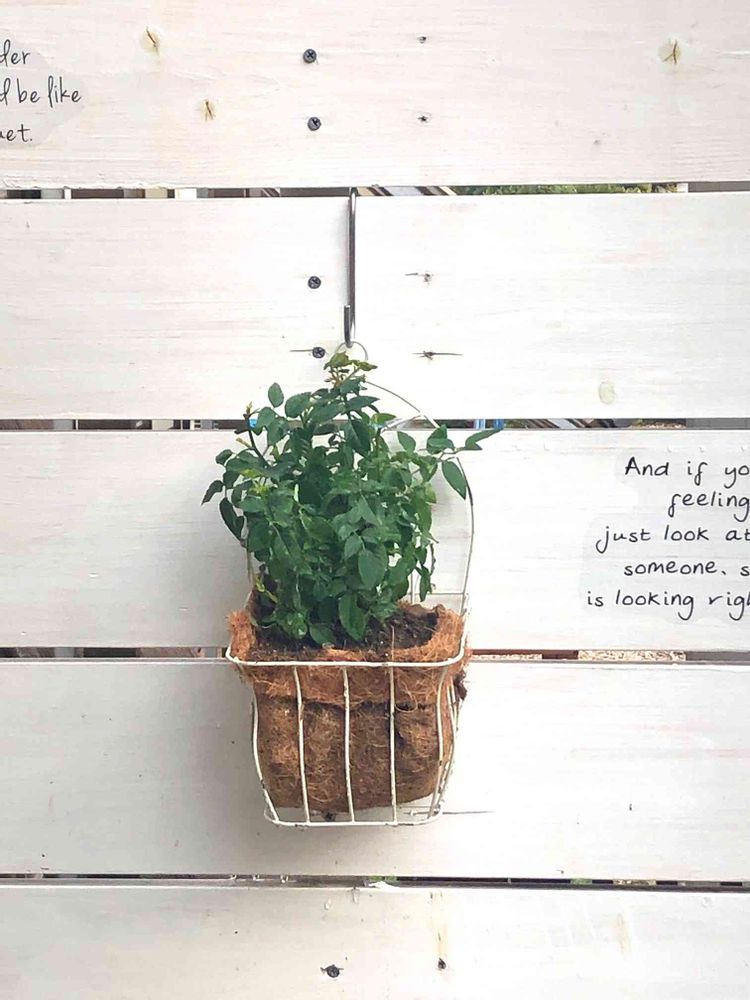 der
d be like
et.
And if yo
feeling
just look at
someone. s
is looking righ